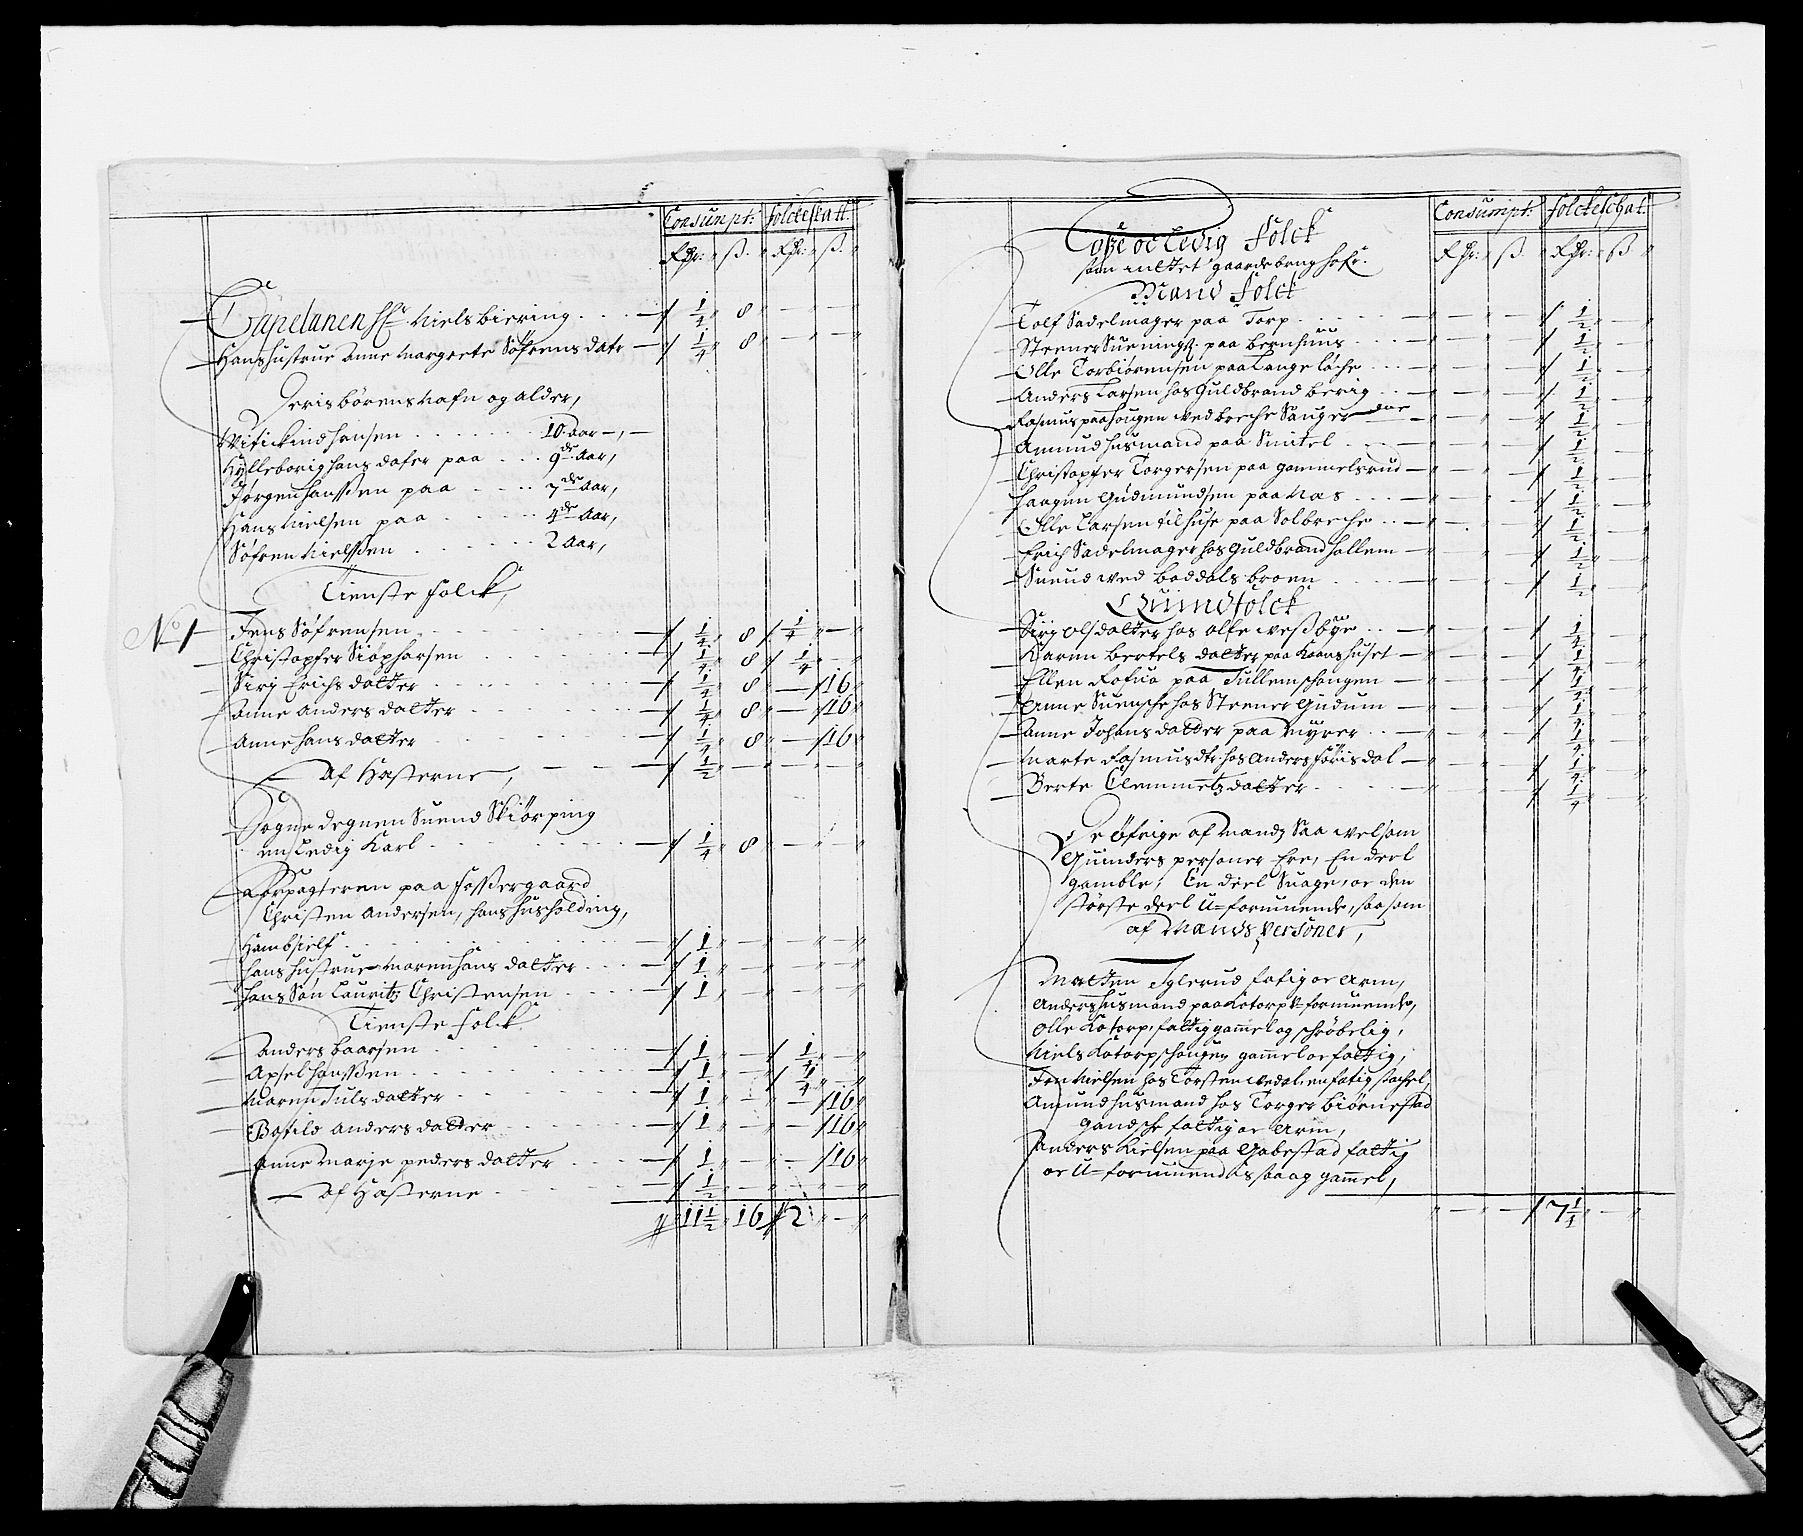 Consumpt: folckeskatt:
Rdr: ß. Rdr: ß.
Capelanen Hr Niels biering - - - 1/4 8 - -
Hans hustrue Anne Margrete Söfrens datr - 1/4 8 - -
Deris börens nafn og alder,
Witickind hansen - - - 10. Aar -,-
Hylleborig hans dater paa - - 9de Aar,
Jörgen hanssen paa - - - 7de Aar,
Hans Nielsen paa - - - 4de Aar,
Söfren Nielssen - - - 2 Aar,
Tieniste folck,
No 1 Jens Söfrensen - - 1/4 8 1/4 -
Christopfer - - 1/4 8 1/4 -
Siri Erichs datter - - 1/4 8 - 16
Anne Anders datter - - 1/4 8 - 16
Anne hans datter - - 1/4 8 - 16
Af Hesterne, - - 1/2 - - -
Sogne degnen Suend Skiörping
en Ledig Karl - - 1/4 8 - -
Forpagteren paa Fossergaard
Christen Andersen, hans husholding,
Hamb sielf - - 1 - - -
hans hustrue Maren hans datter - - 1 - - -
hans Sön Lauritz Christensen - - 1 - - -
Tieniste folck
Anders baarsen - - 1 - 1/4 -
Axsel hanssen - - 1 - 1/4 -
Maren Juls datter - - 1 - - 16
Botild Anders datter - - 1 - - 16
Anne Marje peders datter - - 1 - - 16
Af Hesterne - - 1/2 - - -
11 1/2 16 2 -
Consumpt: folckeschat:
Rdr: ß. Rdr: ß
Löße oc Ledig folck
som intet gaardebrug hafr.
Mand folck
Tolf Sadelmager paa Torp - - - - 1/2 -
Steener Sueningß. paa bernhuus - - - - 1/2 -
Olle Torbiörensen paa Langeløche - - - - 1/2 -
Anders Larsen hos Guldbrand berig - - - - 1/2 -
Rasmus paa hougen wed breche Sauger - - - 1/2 -
Amund husmand paa Suutel - - - - 1/2 -
Christopfer Torgersen paa gammelsrud - - - 1/2 -
haagen Gudmundsen paa Næs - - - - 1/2 -
Olle Larsen tilhuse paa Solbreche - - - - 1/2 -
Erich Sadelmager hos Guldbrand hallem - - - 1/2 -
Suend wed boddals broen - - - - 1/2 -
Quindfolck
Siri Olsdatter hos Olfe weßbye - - - - 1/4 -
Karen bertels datter paa Kaanshuset - - - 1/4 -
Ellen paa Tullemschougen - - - 1/4 -
Anne Suensche hos Steener Gudum - - - 1/4 -
Anne Johans datter paa Myrer - - - - 1/4 -
Marte Rasmusdtr. hos Anders forisdal - - - 1/4 -
Berte Clemmetz datter - - - - 1/4 -
De öfrige af Mandz Saa welsom
Quinders personer Ere, En deel
gamble, En deel Suage, oc den
störste deel U-formuende, saasom
af Mands personer,
Matten Iglerud fatig oc Arm,
Anders husmand paa Kotorp U-formuende,
Olle Kotorp, fattig gammel og schröbelig,
Niels Kotorpschougen gammel oc fattig,
Jon Nielsen hos Torsten wedal, en fatig stachel,
Amund husmand hos Torger biörnestad
gandsche fattig oc Arm,
Anders Kielsen paa Gabestad fattig
oc U-formuendis saa og gammel,
- - 7 1/4 -